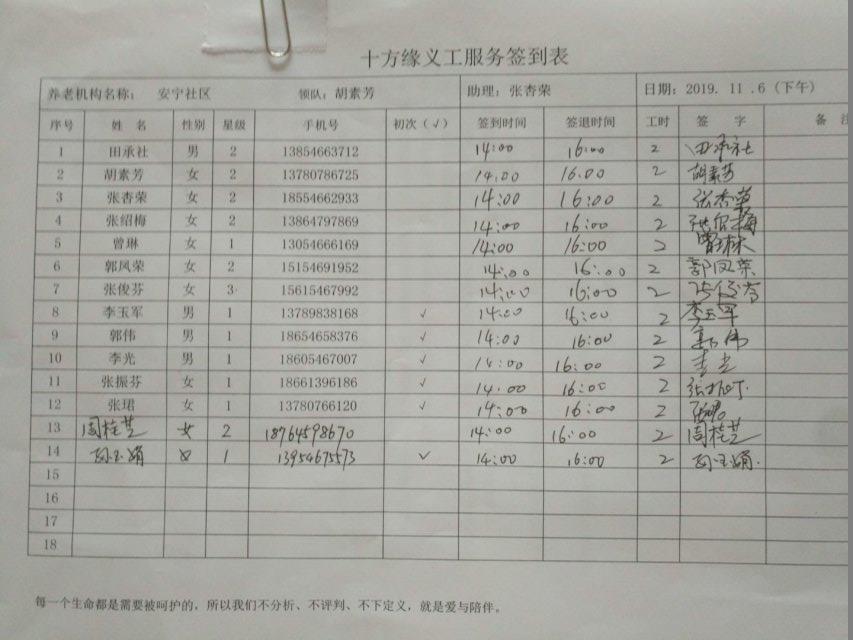 十方缘义工服务签到表
养老机构名称： 安宁社区 领队：胡素芳 助理：张杏荣 日期：2019. 11 .6（下午）
序号 姓 名 性别 星级 手机号 初次（√） 签到时间 签退时间 工时 签 字 备
1 田承社 男 2 13854663712 14:00 16:00 2 田承社
2 胡素芳 女 2 13780786725 14:00 16:00 2 胡素芳
3 张杏荣 女 2 18554662933 14:00 16:00 2 张杏荣
4 张绍梅 女 2 13864797869 14:00 16:00 2 张绍梅
5 曾琳 女 1 13054666169 14:00 16:00 2 曾琳
6 郭凤荣 女 2 15154691952 14:00 16:00 2 郭凤荣
7 张俊芬 女 3 15615467992 14:00 16:00 2
8 李玉军 男 1 13789838168 √ 14:00 16:00 2 李玉军
9 郭伟 男 1 18654658376 √ 14:00 16:00 2 郭伟
10 李光 男 1 18605467007 √ 14:00 16:00 2 李光
11 张振芬 女 1 18661396186 √ 14:00 16:00 2
12 张珺 女 1 13780766120 √ 14:00 16:00 2 张珺
13 周桂芝 女 2 18764598670 14:00 16:00 2 周桂芝
14 孙玉娟 女 1 13954675573 √ 14:00 16:00 2 孙玉娟
15
16
17
18
每一个生命都是需要被呵护的，所以我们不分析、不评判、不下定义，就是爱与陪伴。